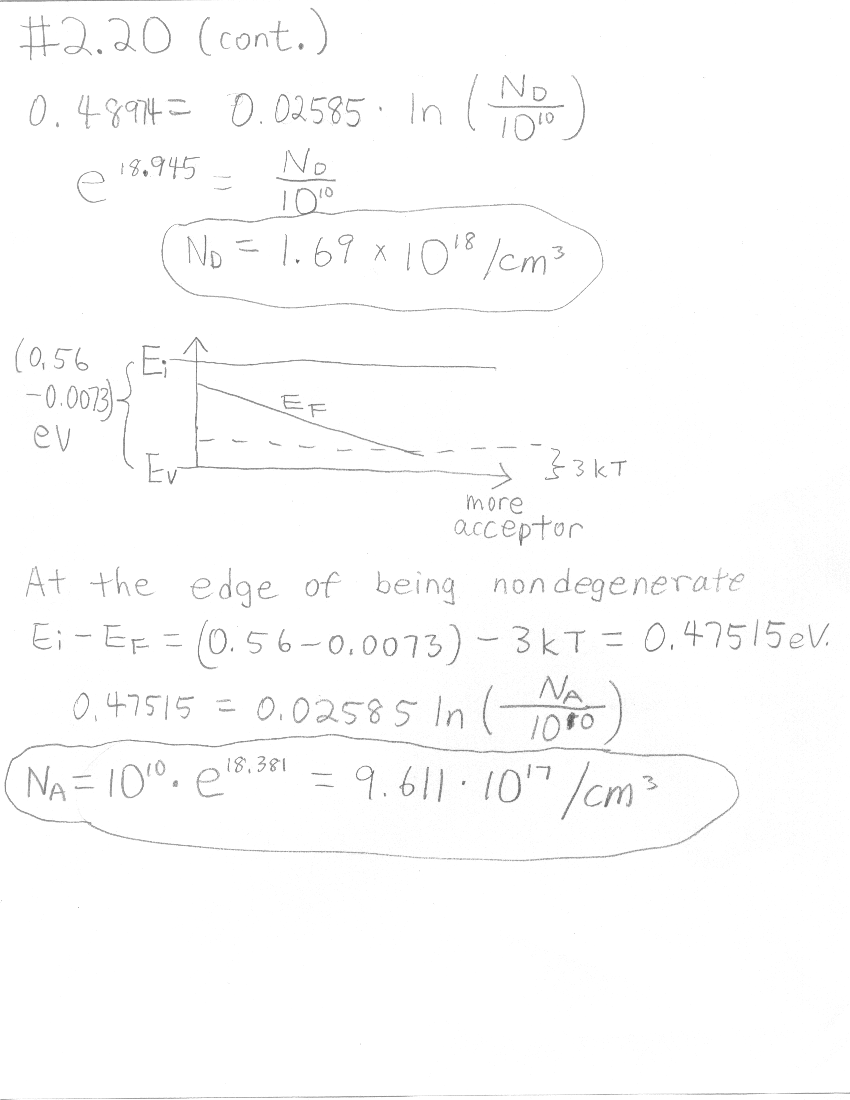 #2.20 (cont.)
0.48974 = 0.02585 · ln (N_D / 10^10)
e^18.945 = N_D / 10^10
N_D = 1.69 × 10^18 /cm^3
(0.56 -0.0073) eV
E_i
E_F
E_V
3kT
more acceptor
At the edge of being nondegenerate
E_i - E_F = (0.56 - 0.0073) - 3kT = 0.47515 eV.
0.47515 = 0.02585 ln (N_A / 10^10)
N_A = 10^10 · e^18.381 = 9.611 · 10^17 /cm^3